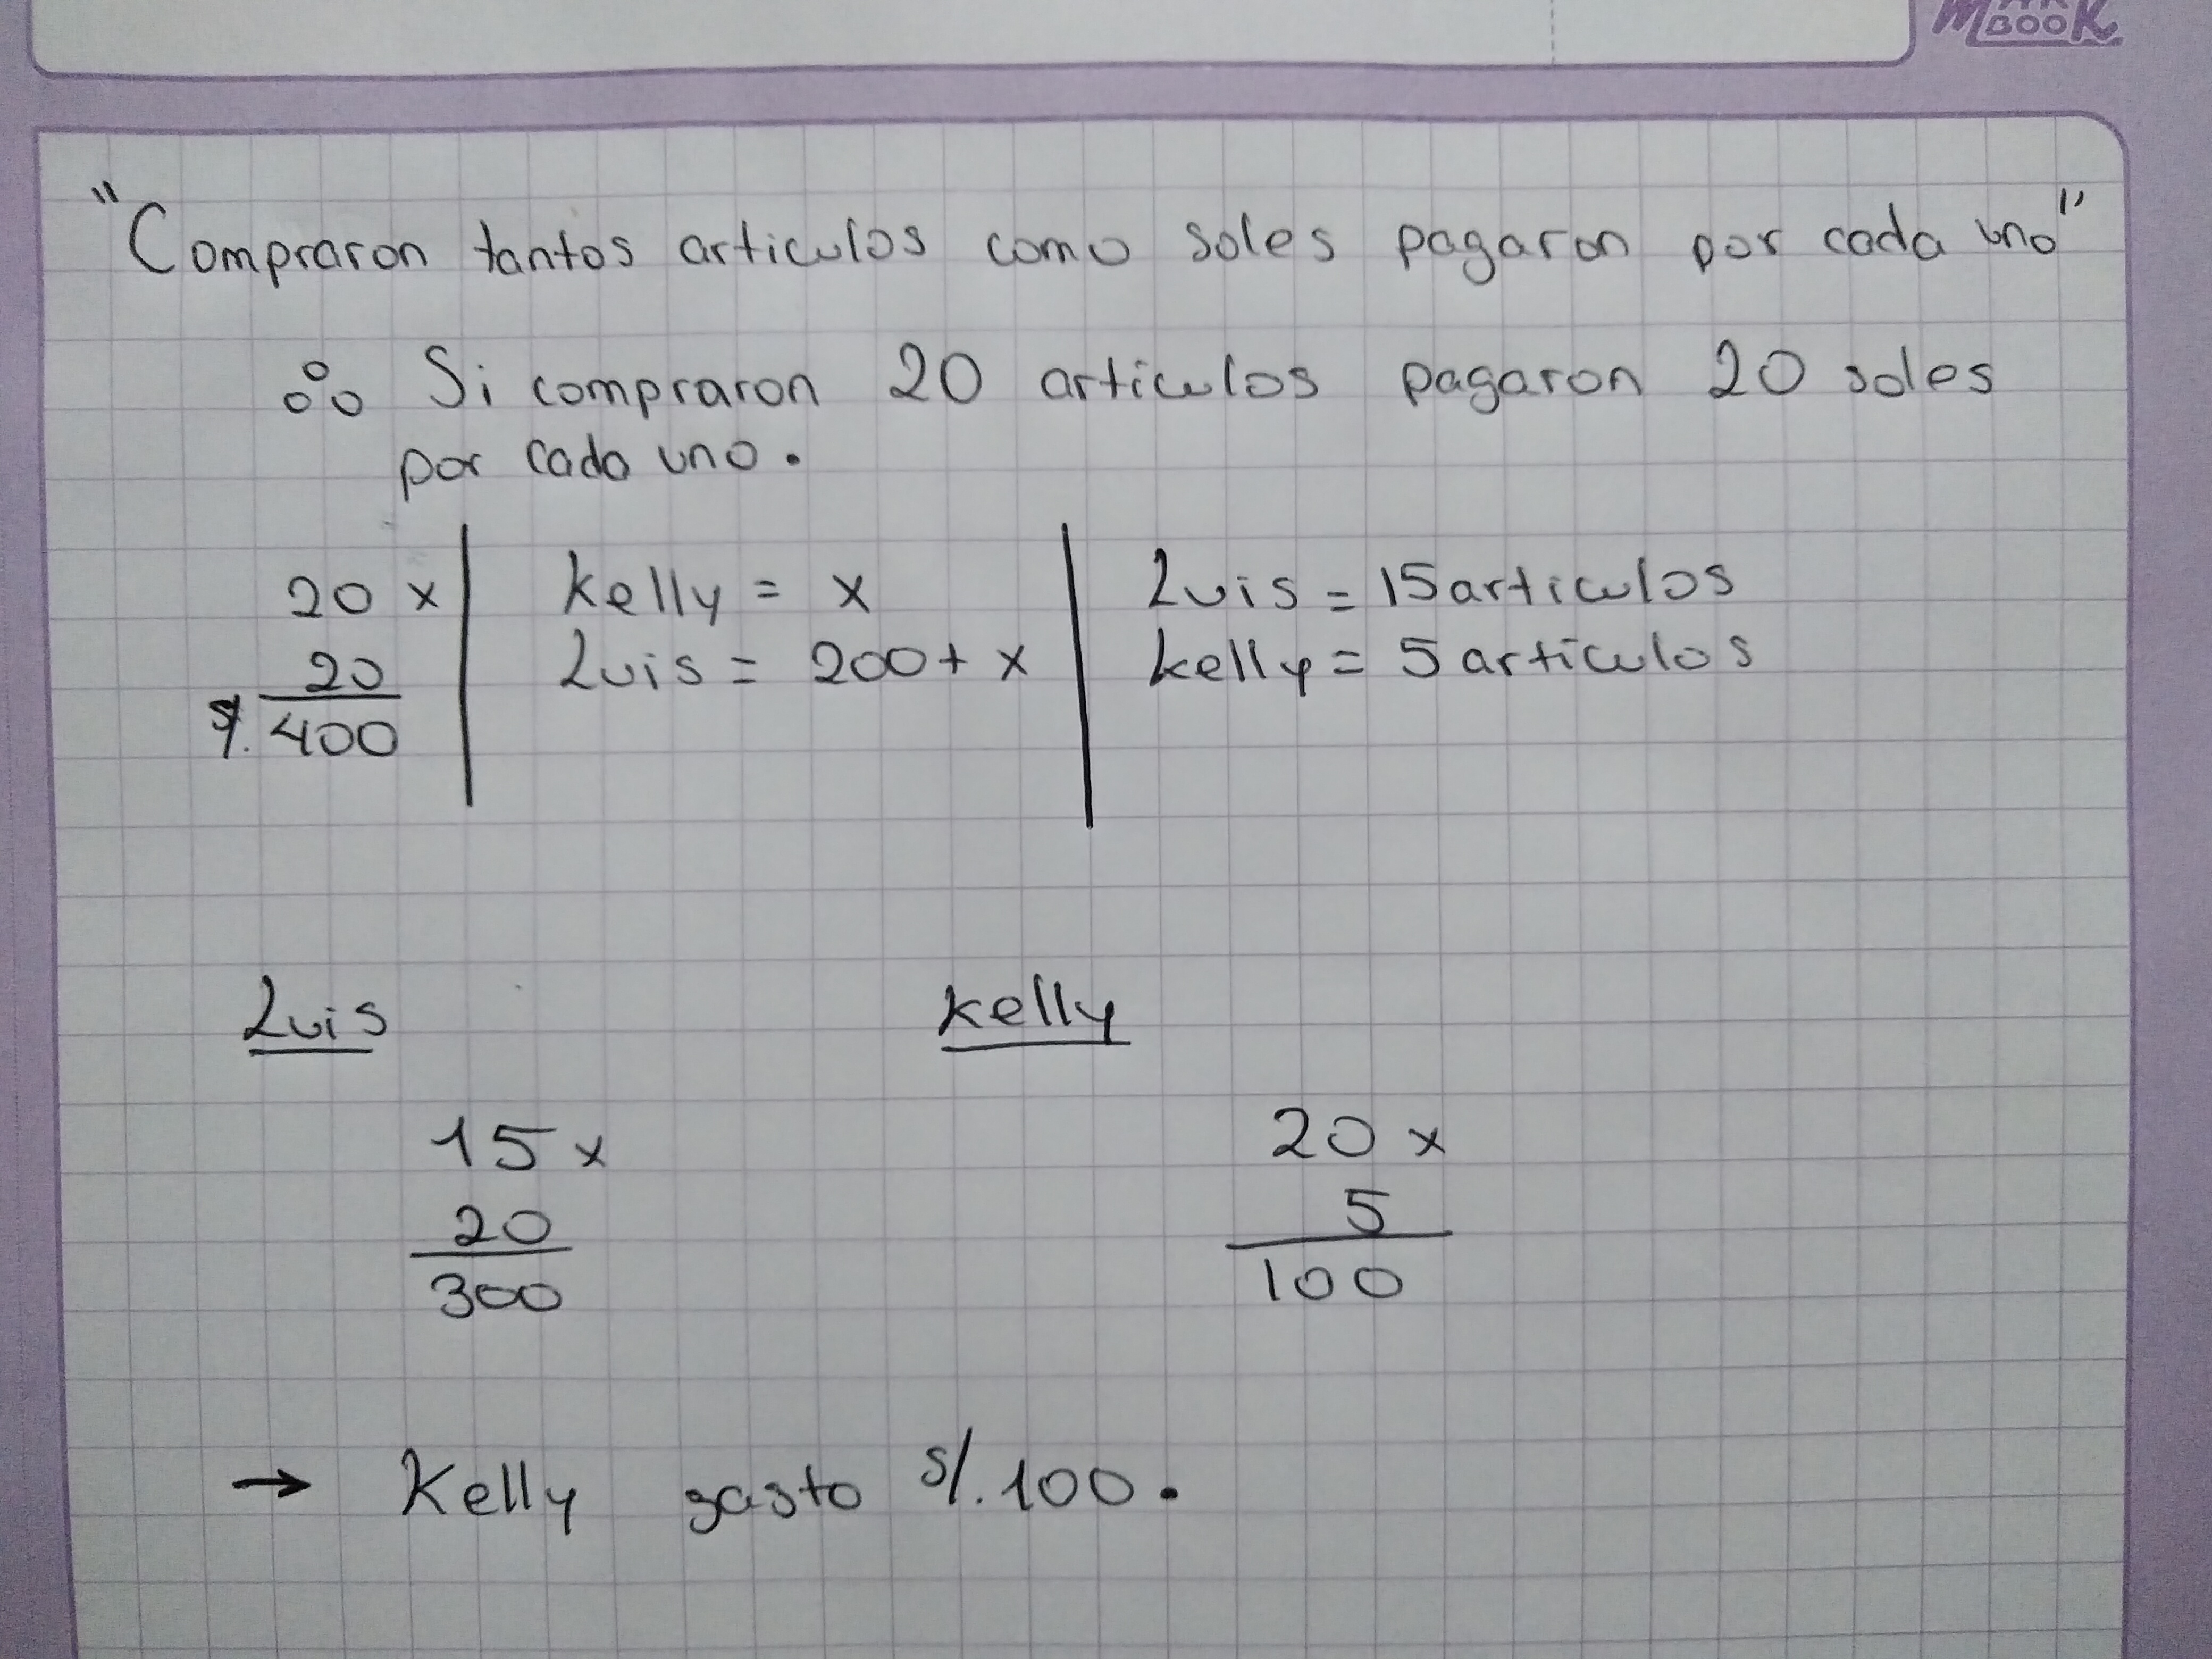 BOOK
"Compraron tantos articulos como soles pagaron por cada uno"
∴ Si compraron 20 articulos pagaron 20 soles
por cada uno.
20 x
20
S/. 400
Kelly = x
Luis = 200 + x
Luis = 15 articulos
Kelly = 5 articulos
Luis
15 x
20
300
Kelly
20 x
5
100
→ Kelly gasto S/. 100.